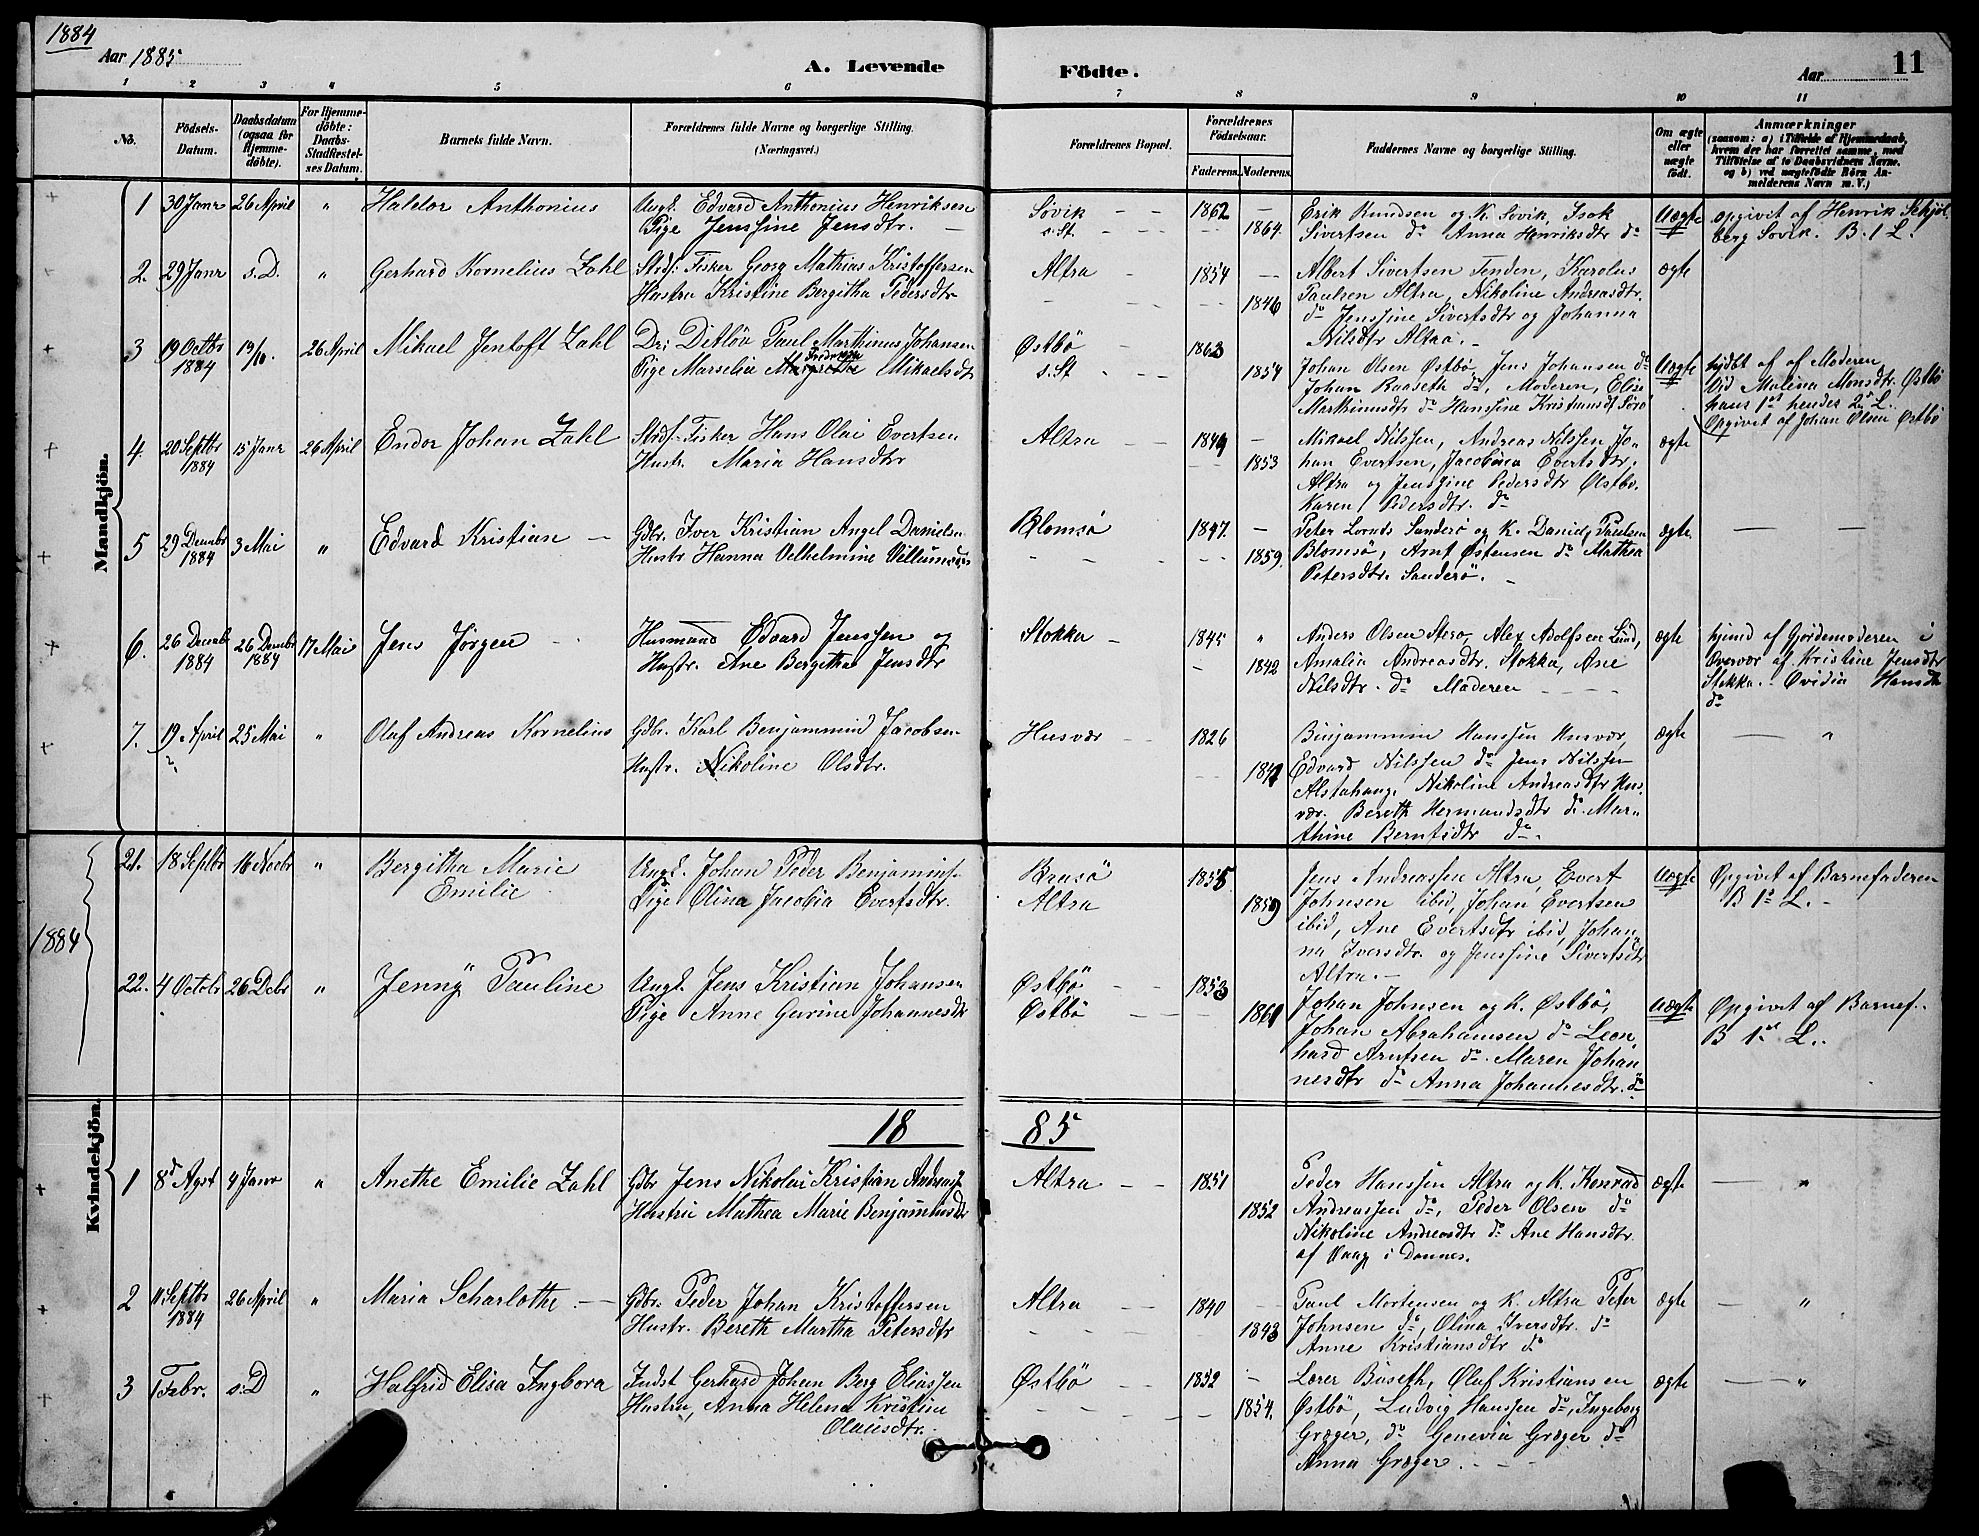 1884
Aar 1885
A. Levende
Födte.
Aar
11
1 2 3 4 5 6 7 8 9 10 11
No.
Födsels-Datum.
Daabsdatum (ogsaa for Hjemme-döbte).
For Hjemme-döbte: Daabs-Stadfæstel-ses Datum.
Barnets fulde Navn.
Forældrenes fulde Navne og borgerlige Stilling.
(Næringsvei.)
Forældrenes Bopæl.
Forældrenes Födselsaar.
Faderens. Moderens.
Faddernes Navne og borgerlige Stilling.
Om ægte eller uægte födt.
Anmærkninger
(saasom: a) i Tilfælde af Hjemmedaab, hvem der har forrettet samme, med Tilföielse af to Daabsvidners Navne, og b) ved uægtefödte Börn An-melderens Navn m. V.)
Mandkjön.
1 30 Janr 26 April " Haldor Anthonius
Ungk. Edvard Anthonius Henriksen
Pige Jenssine Jensdtr.
Søvik
s. St.
1862
1864.
Erik Knudsen og K. Søvik, Isak
Sivertsen do Anna Henriksdtr do
Uægte
opgivet af Henrik Schjel
berg Søvik. B. 1 L.
2. 29 Janr s. D. " Gerhard Kornelius Zahl
Strdf: Fisker Georg Mathias Kristoffersen
Hustru Kristine Bergitha Pedersdtr
Altra
1854
1846
Albert Sivertsen Tenden, Karolus
Paulsen Altra, Nikoline Andreasdtr.
do Jenssine Sivertsdtr og Johanna
Nilsdtr Altra.
ægte
3 19 Octbr 1884 19/10. 26 April Mikael Jentoft Zahl
Dr: Ditløv Paul Marthinus Johansen
Pige Marselia Mikaelsdt
Østbö
s. St
1863
1854
Johan Olsen Østbö, Jens Johansen do
Johan Baaseth do, Moderen, Elise
Marthinusdtr do Hanssine Kristiansdt
Uægte
hjdbt af af Moderen
Vid Malena Monsdtr. Østbö
hans 1st hendes 2d L.
Opgivet af Johan Olsen Østbö
4. 20 Septbr 1884 15 Janr 26 April Endor Johan Zahl
Strdf. Fisker Hans Olai Evertsen
Hustr. Maria Hansdtr
Altra
1849
1853
Mikael Nilssen, Andreas Nilssen Jo-
han Evertsen, Jacobina Evertsdtr.
Altra og Jenssine Pedersdtr Østbö.
Karen Pedersdtr. do
ægte
5 29 Decmbr 1884 3 Mai " Edvard Kristian
Gdbr. Iver Kristian Angel Danielsn
Hustr Hanna Velhelmine Villumsdtr
Blomsö
1847.
1859.
Peter Lornts Sanderö og K. Daniel Paulsen
Blomsö, Arnt Østensen do Mathea
Petersdtr. Sanderö.
ægte
6. 26 Decmb 1884 26 Decmbr 1884 17 Mai Jens Jörgen
Husmand Edvard Jenssen og
Hustr. Ane Bergitha Jensdtr
Stokka
1845
1842
Anders Olsen Sterø, Alex Adolfsen Lund,
Amalia Andreasdtr. Stokka, Ane
Nilsdtr. do Moderen
ægte
af Gjordemoderen i
Overvær af Kristine Jensdtr
Stokka. Ovidia Hansdtr
do
7. 19 April 25 Mai " Olaf Andreas Kornelius
Gdbr. Karl Benjammind Jacobsen
Hustr. Nikoline Olsdtr.
Husvær
1826
1842
Binjammin Hanssen Husvær,
Edvard Nilssen do Jens Nilssen
Alstahaug, Nikoline Andreasdtr Hus-
vær. Bereth Hermandsdtr do. Mar-
thine Berntsdtr do.
ægte
Kvindekjön.
1884
21. 18 Septbr 16 Novbr " Bergitha Marie
Emilie
Ungk. Johan Peder Benjamins.
Pige Olina Jacobia Evertsdtr.
Brasö
Altra
1855.
1859
Jens Andreassen Altra, Evert
Johnsen ibid, Johan Evertsen
ibid, Ane Evertsdtr ibid, Johan-
na Iversdtr. og Jenssine Sivertsdtr
Altra.
Uægte
Opgivet af Barnefaderen
B 1ste L.
22. 4 Octobr 26 Debr " Jenny Pauline
Ungk. Jens Kristian Johansen
Pige Anne Gurine Johannesdtr
Østbö
Østbö
1853
1861
Johan Johnsen og K. Østbö,
Johan Abrahamsen do Leon-
hard Arntsen do. Maren Johan-
nesdtr do Anna Johannesdtr. do
Uægte
Opgivet af Barnef.
B 1st L.
18 85
1 8d Agst 4 Janr " Anethe Emilie Zahl
Gdbr Jens Nikolai Kristian Andreass
Hustru Mathea Marie Benjaminsdtr
Altra
1851
1852
Peder Hanssen Altra og K. Konrad
Andreassen do, Peder Olsen do
Nikoline Andreasdtr do Ane Hansdtr.
af Vaag i Donnes.
ægte
2 11 Septbr 1884 26 April " Maria Scharlothe
Gdbr. Peder Johan Kristoffersen
Hustr. Bereth Martha Petersdtr
Altra
1840
1843
Paul Mortensen og K. Altra Peter
Johnsen do, Olina Iversdtr. do
Anne Kristiansdtr do
ægte
3 1 Febr. s. D " Halfrid Elisa Ingbora
Indst Gerhard Johan Berg Eliassen
Hustru, Anna Helena Kristine
Olausdtr.
Østbö
1852
1854.
Lærer Baaseth, Olaf Kristiansen
Østbö, Ludvig Hanssen do, Ingeborg
Græger, do Genevia Græger do
Anna Græger.
ægte